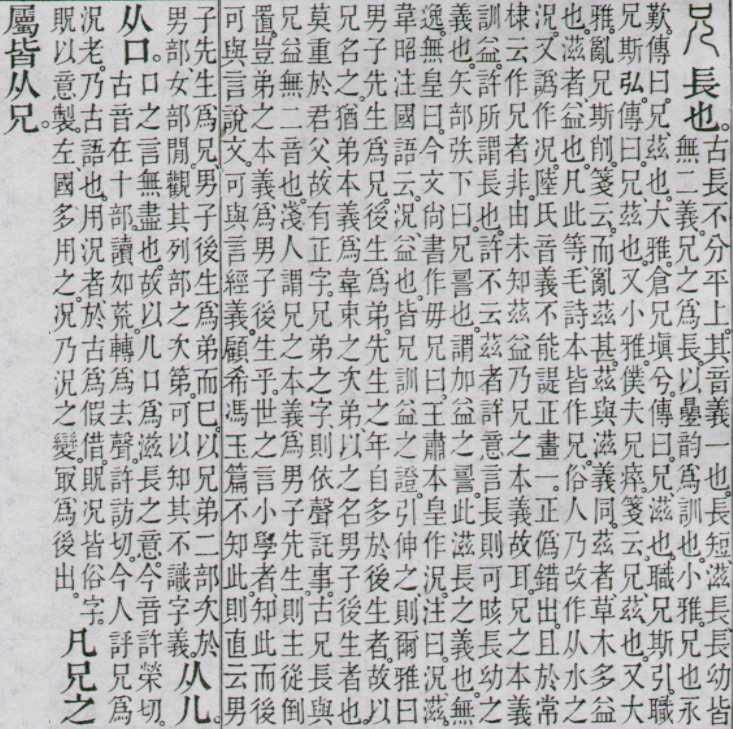 兄長也。古長不分平上。其音義一也。長短滋長長幼皆
無二義。兄之爲長。以曡韵爲訓也。小雅。兄也永
歎。傳曰。兄茲也。大雅。倉兄塡兮。傳曰。兄滋也。職兄斯引。職
兄斯弘。傳曰。兄茲也。又小雅。僕夫兄瘁。箋云。兄茲也。又大
雅。亂兄斯削。箋云。而亂茲甚。茲與滋義同。茲者草木多益
也。滋者益也。凡此等毛詩本皆作兄。俗人乃改作从水之
況。又譌作况。陸氏音義不能諟正畫一。正僞錯出。且於常
棣云作兄者非。由未知茲益乃兄之本義故耳。兄之本義
訓益。許所謂長也。許不云茲者。許意言長則可晐長幼之
義也。矢部矤下曰。兄䛐也。謂加益之䛐。此滋長之義也。無
逸。無皇曰。今文尚書作毋兄曰。王肅本皇作況。注曰。況滋。
韋昭注國語云。況益也。皆兄訓益之證。引伸之。則爾雅曰
男子先生爲兄。後生爲弟。先生之年自多於後生者。故以
兄名之。猶弟本義爲韋束之次弟。以之名男子後生者也。
莫重於君父。故有正字。兄弟之字。則依聲託事。古兄長與
兄益無二音也。淺人謂兄之本義爲男子先生。則主從倒
置。豈弟之本義爲男子後生乎。世之言小學者。知此而後
可與言說文。可與言經義。顧希馮玉篇不知此。則直云男
子先生爲兄。男子後生爲弟而巳。以兄弟二部次於
男部女部閒。觀其列部之次第。可以知其不識字義。从儿。
从口。口之言無盡也。故以儿口爲滋長之意。今音許榮切。
古音在十部。讀如荒。轉爲去聲。許訪切。今人評兄爲
況老。乃古語也。用況者。於古爲假借。貺况皆俗字。
貺以意製。左國多用之。况乃況之變。冣爲後出。凡兄之
屬皆从兄。